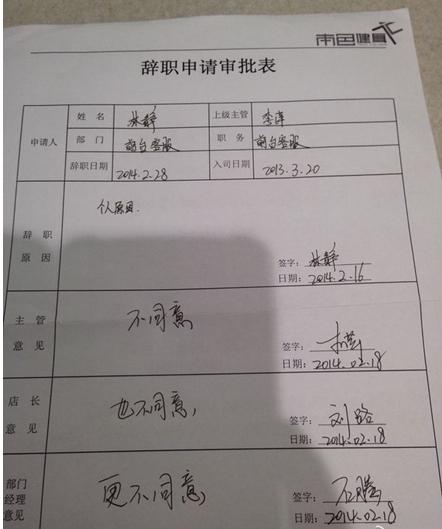 南邑健身
辞职申请审批表
申请人 姓名 林静 上级主管 李萍
部门 前台客服 职务 前台客服
辞职日期 2014.2.28 入司日期 2013.3.20
辞职原因 个人原因.
签字: 林静
日期: 2014.2.16
主管意见 不同意
签字:
日期: 2014.02.18
店长意见 也不同意,
签字: 刘路
日期: 2014.02.18
部门经理意见 更不同意
签字: 石腾
日期: 2014.02.18